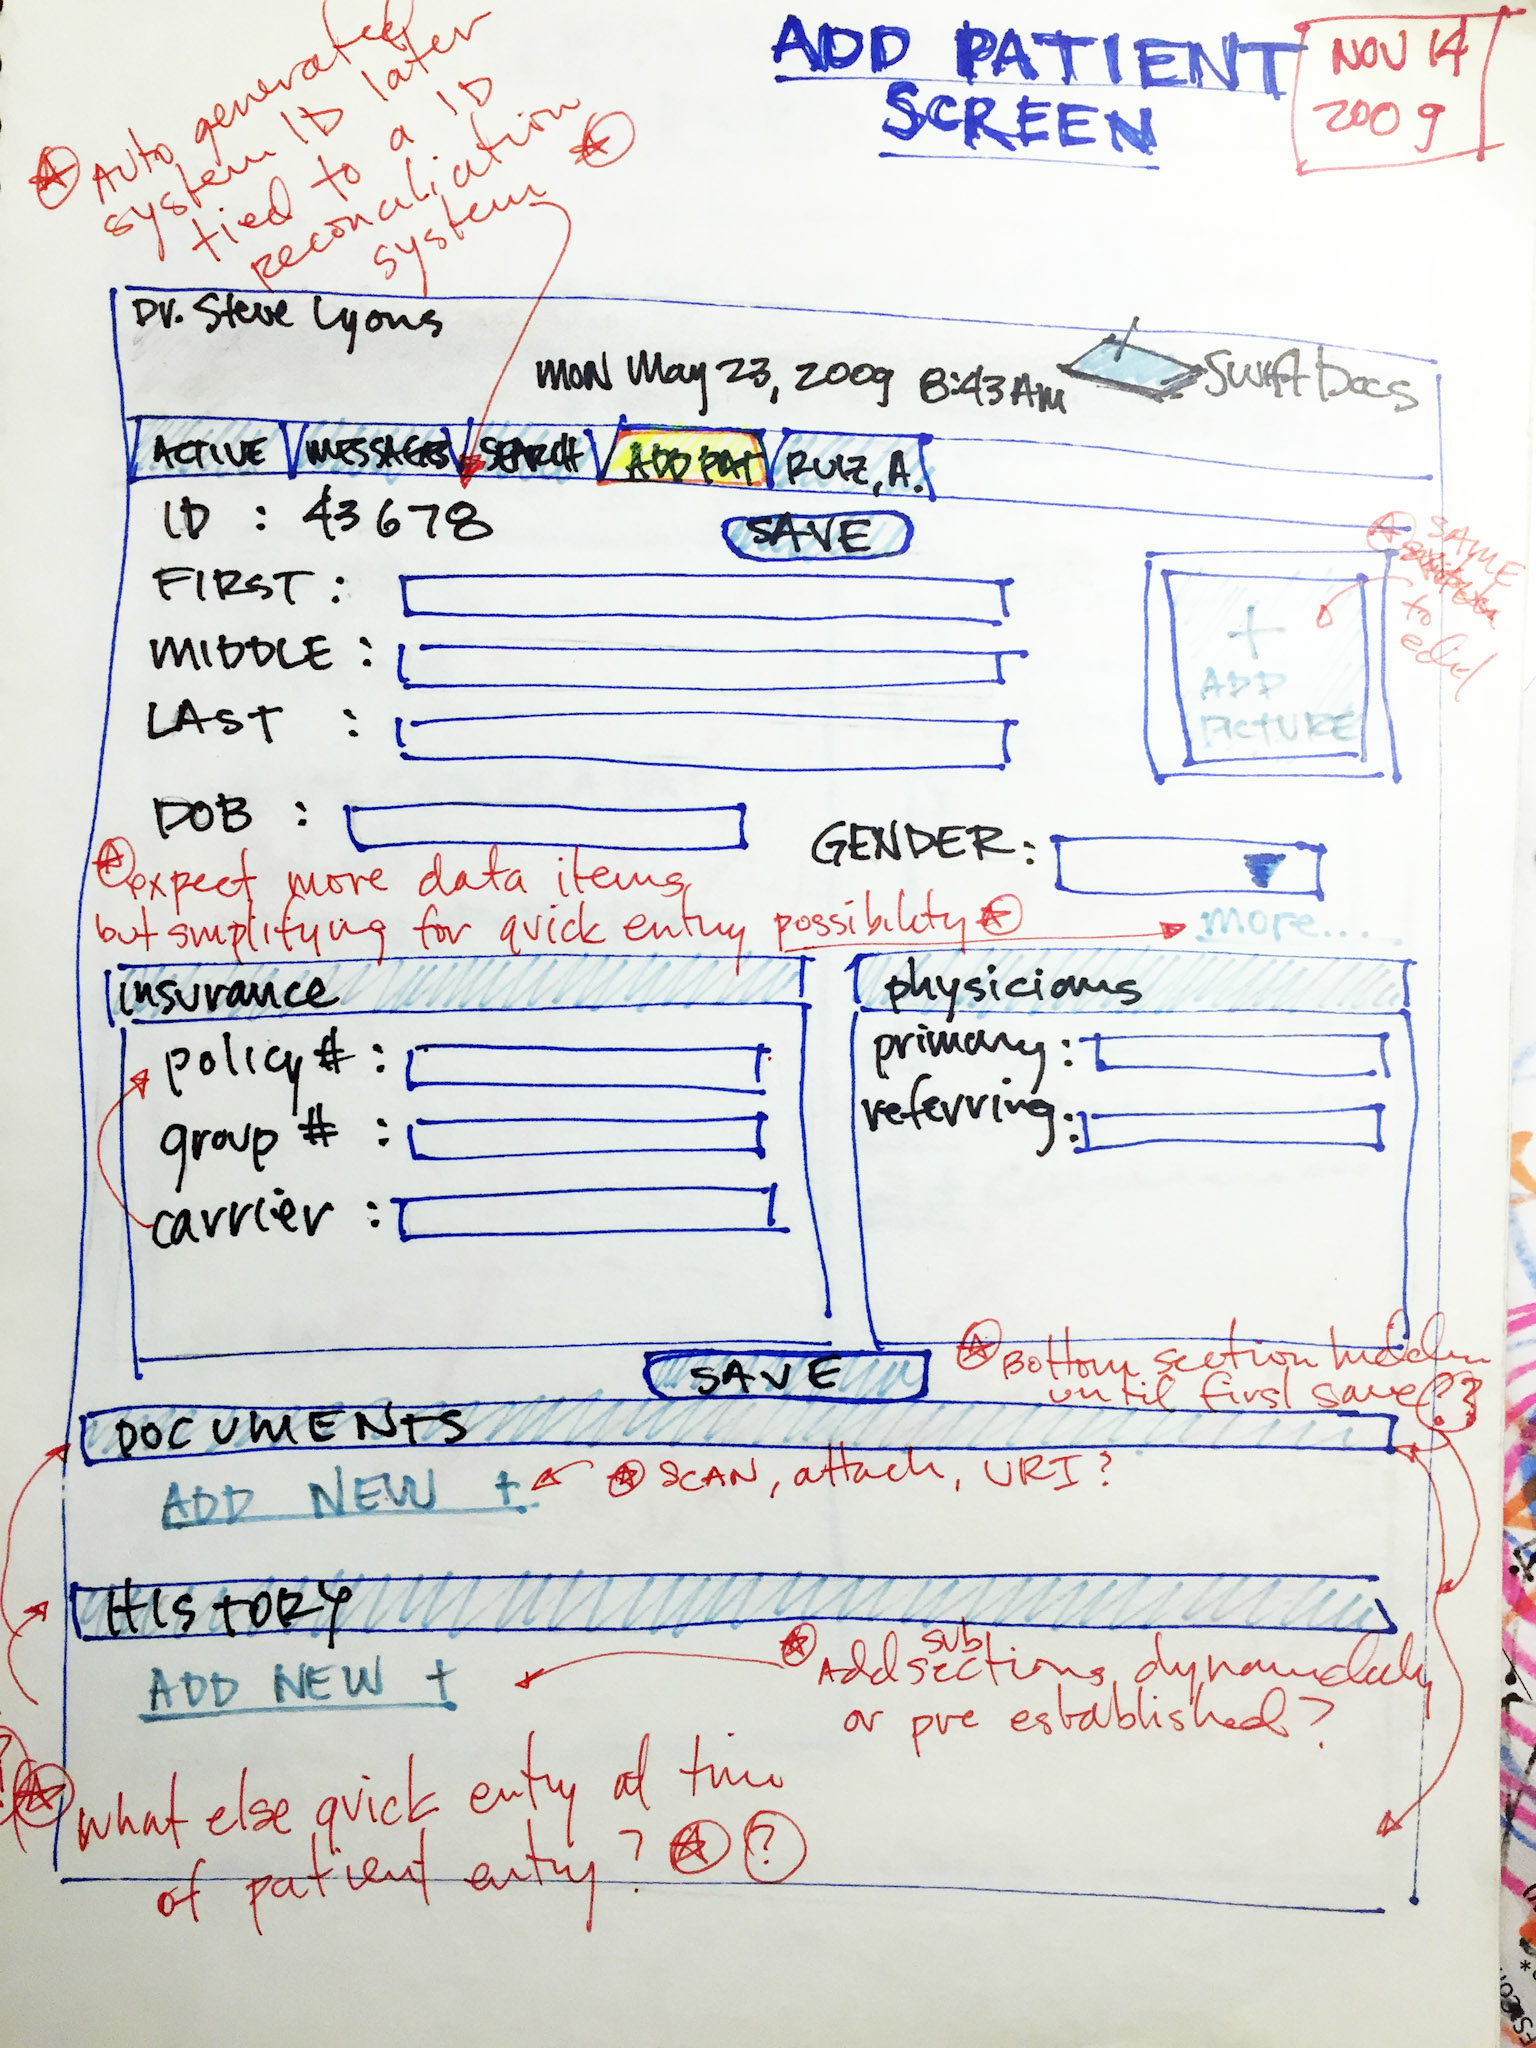 ADD PATIENT
SCREEN
NOV 14
2009
Auto generated
system ID later
tied to a ID
reconciliation
system
Dr. Steve Lyons
MON May 23, 2009 8:43 AM
Swift Docs
ACTIVE
MESSAGES
SEARCH
ADD PAT
RUIZ, A.
ID : 43678
SAVE
FIRST :
MIDDLE :
LAST :
+
ADD
PICTURE
SAME
to
edit
DOB :
GENDER:
expect more data items
but simplifying for quick entry possibility
more....
insurance
policy # :
group # :
carrier :
physicians
primary :
referring :
SAVE
Bottom section hidden
until first save(??
DOCUMENTS
ADD NEW +
SCAN, attach, URI?
HISTORY
ADD NEW +
Add sub sections dynamically
or pre established?
?
What else quick entry at time
of patient entry? ?